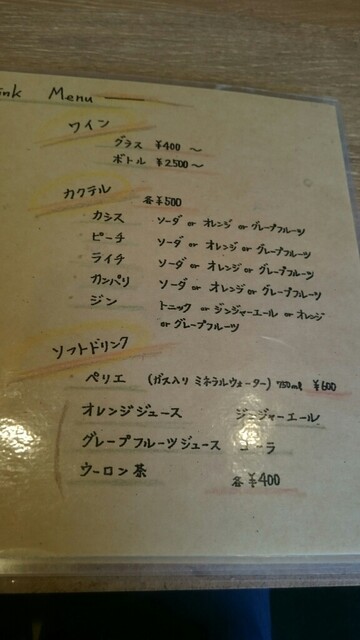 ink Menu
ワイン
グラス ¥400 ～
ボトル ¥2500～
カクテル 各¥500
カシス ソーダ or オレンジ or グレープフルーツ
ピーチ ソーダ or オレンジ or グレープフルーツ
ライチ ソーダ or オレンジ or グレープフルーツ
カンパリ ソーダ or オレンジ or グレープフルーツ
ジン トニック or ジンジャーエール or オレンジ
or グレープフルーツ
ソフトドリンク
ペリエ (ガス入り ミネラルウォーター) 750ml ¥600
オレンジジュース ジンジャーエール
グレープフルーツジュース コーラ
ウーロン茶 各¥400